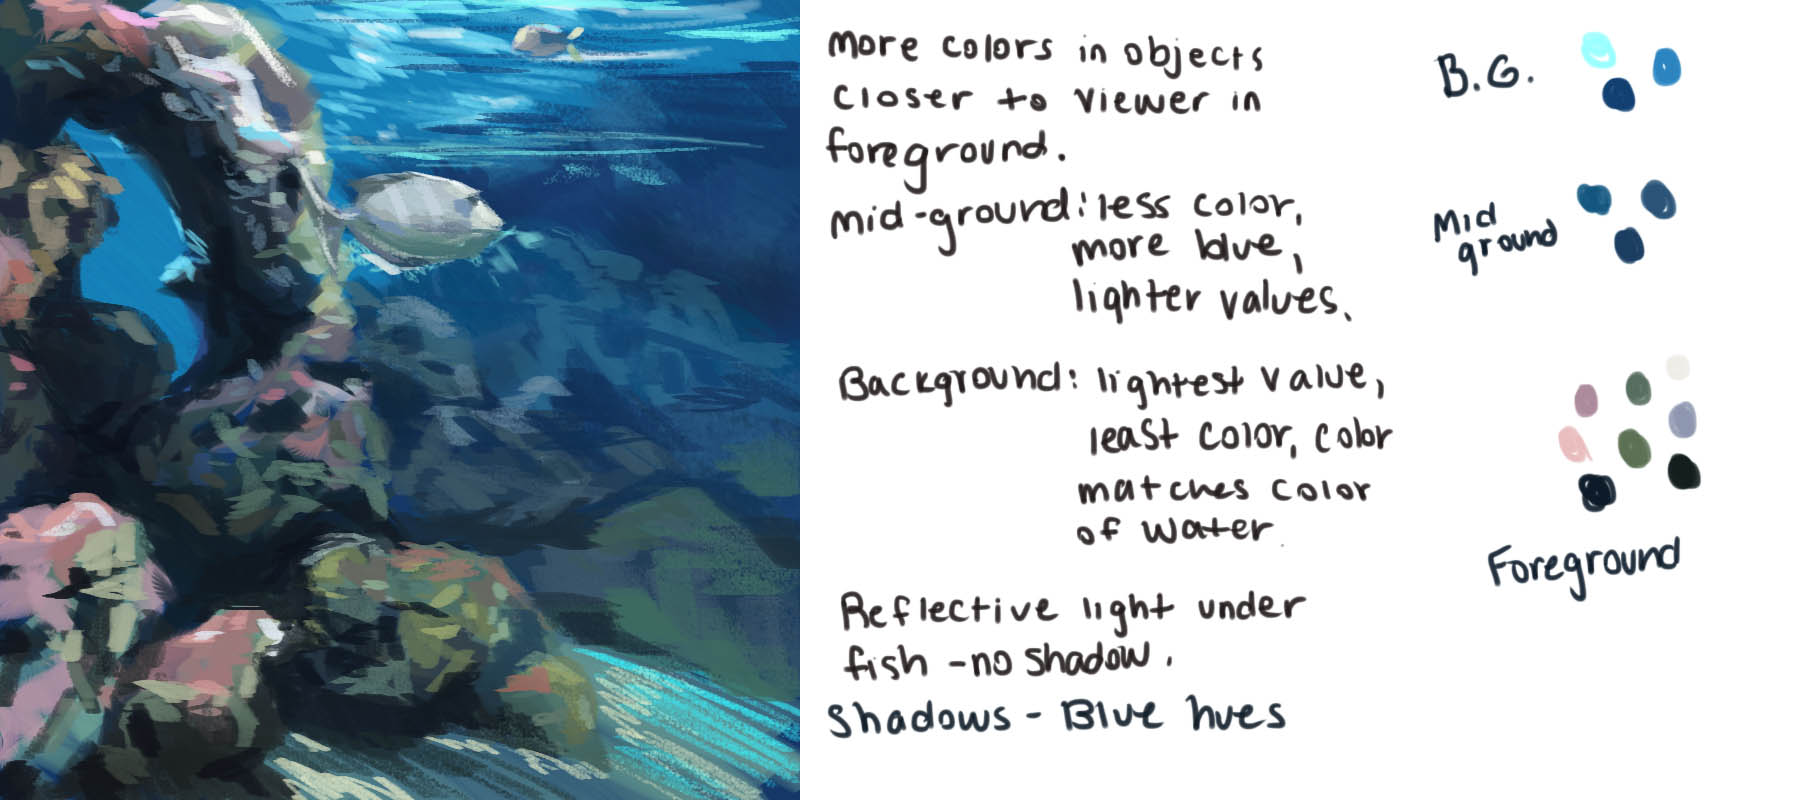 More colors in objects
closer to viewer in
foreground.
mid-ground: less color,
more blue,
lighter values.
Background: lightest value,
least color, color
matches color
of water
Reflective light under
fish - no shadow.
Shadows - Blue hues
B.G.
Mid
ground
Foreground